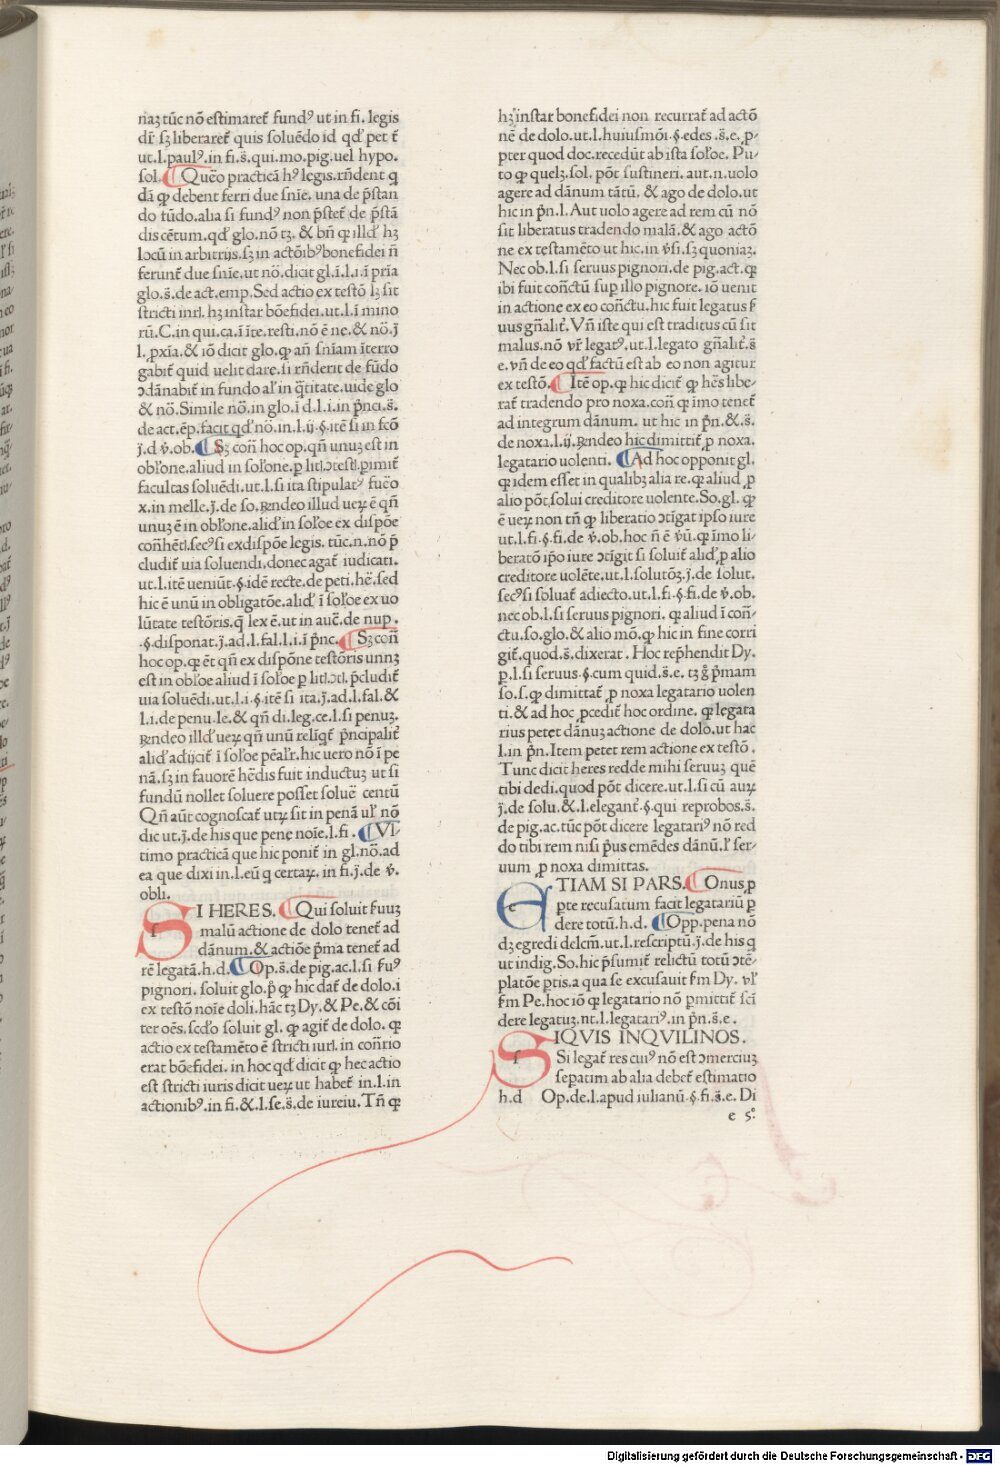 naʒ tūc nō estimaret᷑ fundꝰ ut in fi. legis
dr̄ sʒ liberaret᷑ quis soluēdo id qd' pet t᷑
ut.l.paulꝰ.in fi.s̄.qui.mo.pig.uel hypo.
sol. ¶ Quęo practicā hꝰ legis.rn̄dent q
dā ꝙ debent ferri due snīe. una de p̄stan
do tūdo.alia si fundꝰ non p̄stet᷑ de p̄stā
dis cētum.qd' glo.nō tʒ. & bn̄ ꝙ illd' hʒ
locū in arbitrijs.sʒ in actōibꝰ bonefidei n̄
ferunt᷑ due snīe.ut nō.dicit gl.ī.l.i.ī pria
glo.s̄.de act.emp. Sed actio ex testō lʒ sit
stricti iurl. hʒ instar bōefidei.ut.l.ī mino
rū.C.in qui.ca.ī īte.resti.nō ē ne.& nō.j̄
l.ꝓxīa.& iō dicit glo.ꝙ an̄ snīam īterro
gabit᷑ quid uelit dare.si rn̄derit de fūdo
ɔdānabit᷑ in fundo al' in q̄titate.uide glo
& nō. Simile nō.in glo.ī d.l.i.in p̄nci.s̄.
de act.ēp.facit qd' nō.in.l.ij.§.itē si in fcō
j̄.d v̄.ob. ¶ Sʒ con̄ hoc op.qn̄ unuʒ est in
obl'one.aliud in sol'one.p litl.ɔtestl.p̄imit᷑
facultas soluēdi.ut.l.si ita stipulatꝰ fuęo
x.in melle.j̄.de so.Rn̄deo illud ueꝝ ē qn̄
unuʒ ē in obl'one.alid' in sol'oe ex dispōe
con̄hētl.secꝰ si exdispōe legis. tūc.n.nō p̄
cludit᷑ uia soluendi.donec agat᷑ iudicati.
ut.l.itē ueniūt.§.idē recte.de peti.hē.sed
hic ē unū in obligatōe.alid' ī sol'oe ex uo
lūtate testōris.q̄ lex ē.ut in auc̄.de nup.
.§.disponat.j̄.ad.l.fal.l.i.ī p̄nc. ¶ Sʒ con̄
hoc op.ꝙ ēt qn̄ ex dispōne testōris unnʒ
est in obl'oe aliud ī sol'oe p litl.ɔtl. p̄cludit᷑
uia soluēdi.ut.l.i.§.itē si ita.j̄.ad.l.fal.&
l.i.de penu.le.& qn̄ di.leg.ce.l.si penuʒ.
Rn̄deo illd' ueꝝ qn̄ unū relīqt᷑ p̄ncipalit᷑
alid' adijcit᷑ ī sol'oe pēal'r.hic uero nō ī pe
nā.sʒ in fauorē hēdis fuit inductuʒ ut si
fundū nollet soluere posset soluē centū
Qn̄ aūt cognoscat᷑ utꝝ sit in penā ul' nō
dic ut.j̄.de his que pene noīe.l.fi. ¶ Vl
timo practicā que hic ponit᷑ in gl.nō.ad
ea que dixi in.l.eū q certaꝝ.in fi.j̄.de v̄.
obli.
SI HERES. ¶ Qui soluit fuuʒ
malū actione de dolo tenet᷑ ad
dānum.& actiōe p̄ma tenet᷑ ad
rē legatā.h.d. ¶ Op.s̄.de pig.ac.l.si fuꝰ
pignori. soluit glo.p̄ ꝙ hic dat᷑ de dolo.i
ex testō noīe doli.hāc tʒ Dy.& Pe.& cōi
ter oēs.scd'o soluit gl. ꝙ agit᷑ de dolo. ꝙ
actio ex testamēto ē stricti iurl. in con̄rio
erat bōefidei.in hoc qd' dicit ꝙ hec actio
est stricti iuris dicit ueꝝ ut habet᷑ in.l.in
actionibꝰ.in fi.&.l.se.s̄.de iureiu. Tn̄ ꝙ
hʒ instar bonefidei non recurrat᷑ ad actō
nē de dolo.ut.l.huiusmōi.§.edes.s̄.e.ꝓ
pter quod doc.recedūt ab ista sol'oe. Pu
to ꝙ quelʒ.sol. pōt sustineri. aut.n.uolo
agere ad dānum tātū. & ago de dolo.ut
hic in p̄n.l. Aut uolo agere ad rem cū nō
sit liberatus tradendo malā.& ago actō
ne ex testamēto ut hic.in v̄si.sʒ quoniaʒ.
Nec ob.l.si seruus pignori.de pig.act.ꝙ
ibi fuit con̄ctū sup illo pignore.iō uenit
in actione ex eo con̄ctu.hic fuit legatus f
uus gn̄alit᷑. Vn̄ iste qui est traditus cū sit
malus.nō vr̄ legatꝰ.ut.l.legato gn̄alit᷑.s̄
e.vn̄ de eo qd' factū est ab eo non agitur
ex testō. ¶ Itē op.ꝙ hic dicit᷑ ꝙ hēs libe
rat᷑ tradendo pro noxa.con̄ ꝙ imo tenet᷑
ad integrum dānum. ut hic in p̄n.&.s̄.
de noxa.l.ij.Rn̄deo hic dimittit᷑ ꝓ noxa.
legatario uolenti. ¶ Ad hoc opponit gl.
ꝙ idem esset in qualibʒ alia re.ꝙ aliud ꝓ
alio pōt solui creditore uolente. So.gl. ꝙ
ē ueꝝ non tn̄ ꝙ liberatio ɔtīgat ipso iure
ut.l.fi.§.fi.de v̄.ob.hoc n̄ ē v̄ū.ꝙ īmo li
beratō ip̄o iure ɔtīgit si soluit alid' ꝓ alio
creditore uolēte.ut.l.solutōʒ.j̄.de solut.
secꝰ si soluat᷑ adiecto.ut.l.fi.§.fi.de v̄.ob.
nec ob.l.si seruus pignori. ꝙ aliud ī con̄
ctu.so.glo.& alio mō.ꝙ hic in fine corri
git᷑.quod.s̄.dixerat. Hoc rep̄hendit Dy.
p.l.si seruus.§.cum quid.s̄.e. tʒ g° p̄mam
so.s.ꝙ dimittat᷑ ꝓ noxa legatario uolen
ti.& ad hoc ꝓcedit᷑ hoc ordine. ꝙ legata
rius petet dānuʒ actione de dolo.ut hac
l.in p̄n. Item petet rem actione ex testō.
Tunc dicit heres redde mihi seruuʒ quē
tibi dedi.quod pōt dicere.ut.l.si cū auꝝ
j̄.de solu.&.l.elegant᷑.§.qui reprobos.s̄.
de pig.ac.tūc pōt dicere legatariꝰ nō red
do tibi rem nisi p̄us emēdes dānū.l' ser
uum ꝓ noxa dimittas.
ETIAM SI PARS. ¶ Onus ꝓ
pte recusatum facit legatariū p
dere totū.h.d. ¶ Opp.pena nō
dʒ egredi delcm̄.ut.l.rescriptū.j̄.de his q
ut indig. So.hic p̄sumit᷑ relictū totū ɔtē
platōe ptis.a qua se excusauit fm Dy. vl'
fm Pe.hoc iō ꝙ legatario nō pmittit᷑ scī
dere legatuʒ.nt.l.legatariꝰ.in p̄n.s̄.e.
SIQVIS INQVILINOS.
Si legat᷑ res cuiꝰ nō est ɔmerciuʒ
sepatim ab alia debet᷑ estimatio
h.d Op.de.l.apud iulianū.§.fi.s̄.e. Di
e 5°.
Digitalisierung gefördert durch die Deutsche Forschungsgemeinschaft - DFG